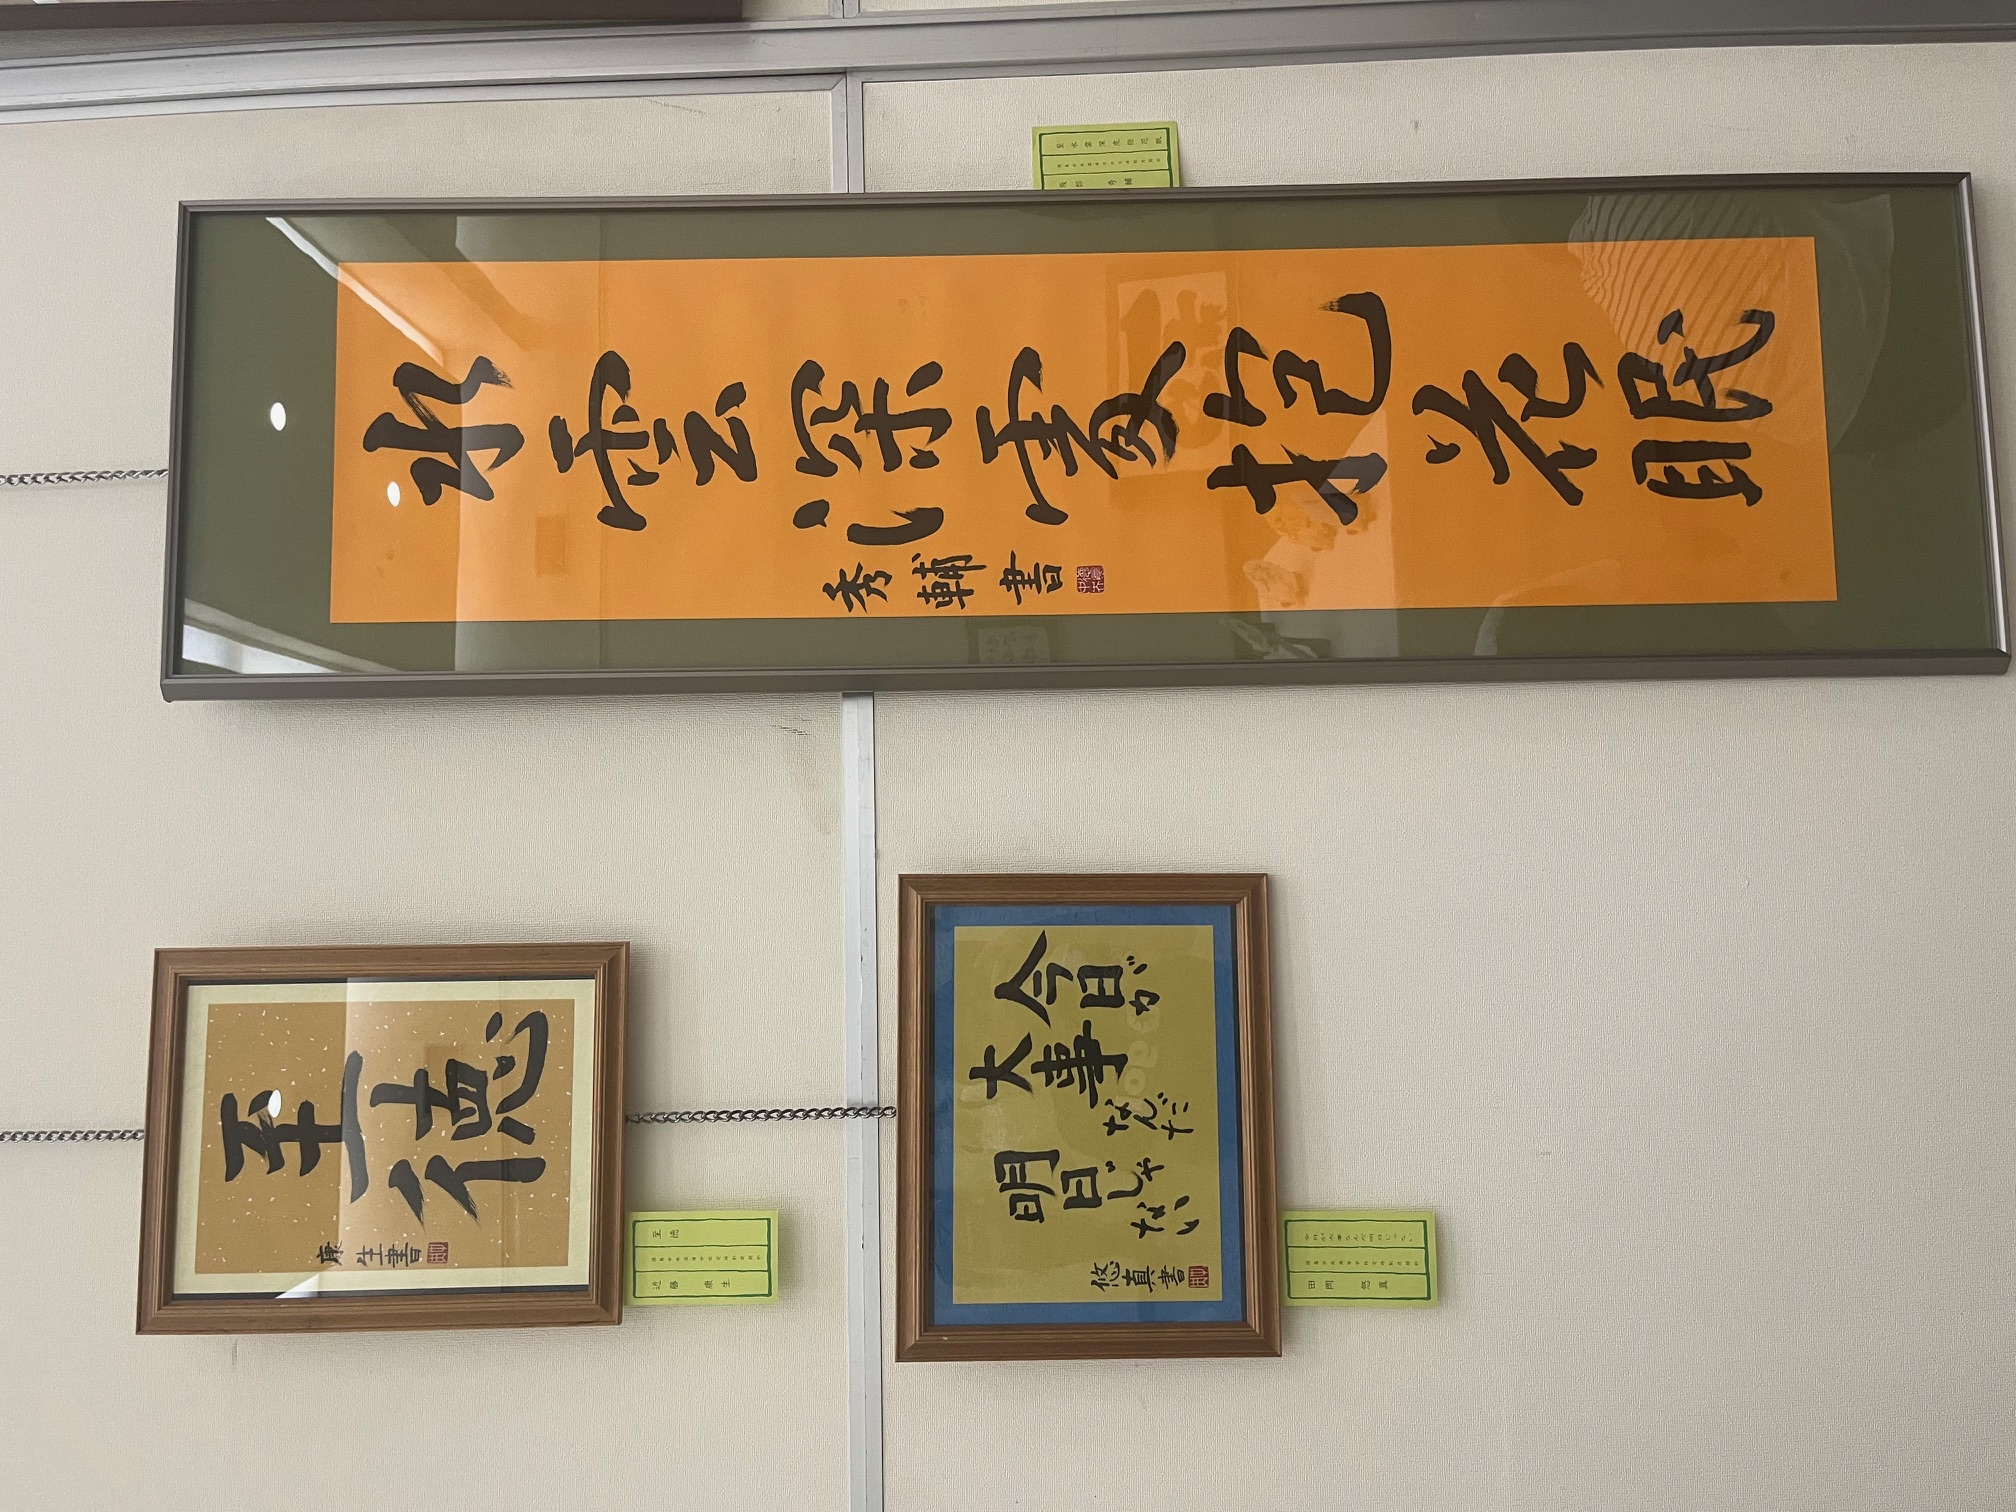 水雲深處抱花眠
秀輔書
至徳
康生書
至徳
近藤 康生
今日が
大事なんだ
明日じゃない
悠真書
今日が大事なんだ明日じゃない
田岡 悠真